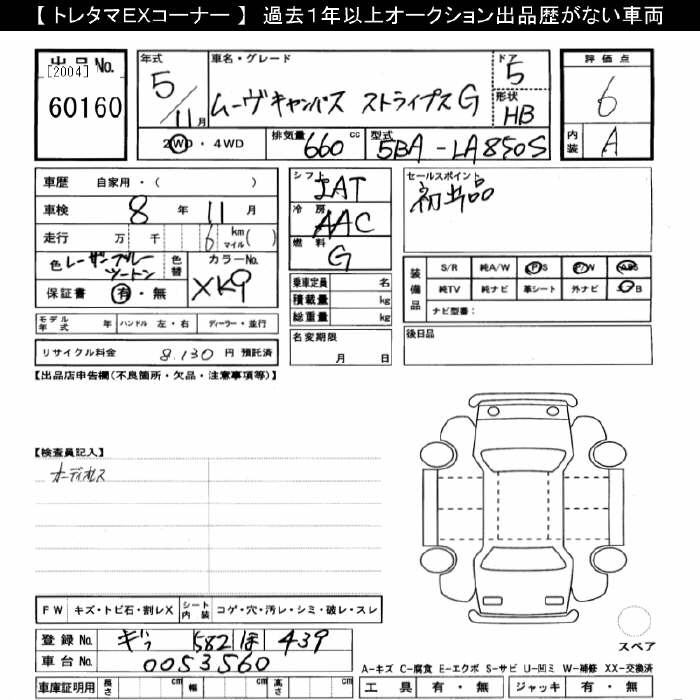 【 トレタマEXコーナー 】 過去1年以上オークション出品歴がない車両
出品No.
[2004]
60160
年式
5/11月
車名・グレード
ムーヴキャンバス ストライプスG
ドア
5
形状
HB
2WD・4WD
排気量
660 cc
型式
5BA-LA850S
評価点
6
内装
A
車歴 自家用・( )
車検 8 年 11 月
走行 万 千 6 km マイル( )
色 レーザーブルーツートン
色替
カラーNo.
XK9
保証書 有・無
シフト
IAT
冷房
AAC
燃料
G
セールスポイント
初出品
乗車定員 名
積載量 kg
総重量 kg
装備品
S/R 純A/W P/S P/W ABS
純TV 純ナビ 革シート 外ナビ B
ナビ型番:
モデル年式 年 ハンドル 左・右 ディーラー・並行
リサイクル料金 8,130 円 預託済
名変期限
月 日
後日品
【出品店申告欄(不良箇所・欠品・注意事項等)】
【検査員記入】
オーディオレス
FW キズ・トビ石・割レX シート内装 コゲ・穴・汚レ・シミ・破レ・スレ
登録No. ギフ 582 ほ 439
車台No. 0053560
スペア
A-キズ C-腐食 E-エクボ S-サビ U-凹ミ W-補修 XX-交換済
車庫証明用 長さ cm 幅 cm 高さ cm
工具 有・無 ジャッキ 有・無